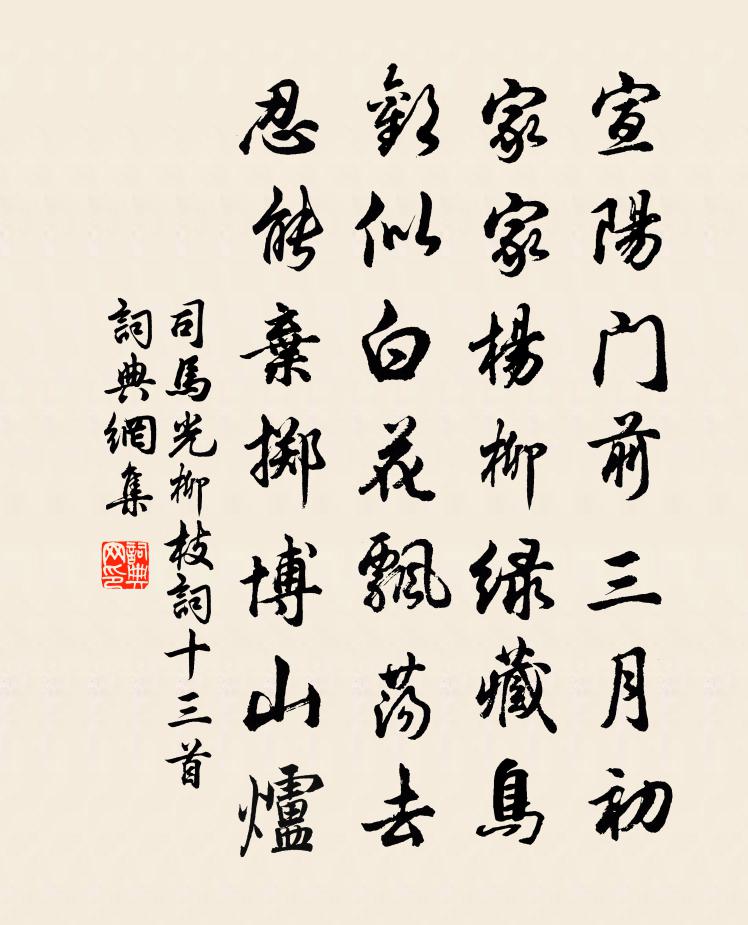 宣陽门前三月初
家家楊柳緑藏烏
歡似白花飄蕩去
忍能棄擲博山爐
司馬光柳枝詞十三首
詞典網集
詞典网印